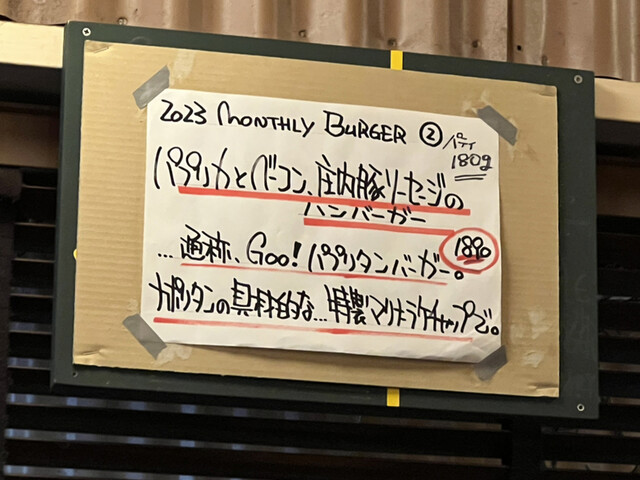 2023 MONTHLY BURGER ②
パティ
180g
パプリカとベーコン、庄内豚ソーセージの
ハンバーガー
1890
...通称、Goo! パプリタンバーガー。
ナポリタンの具材的な...特製マリナラケチャップで。